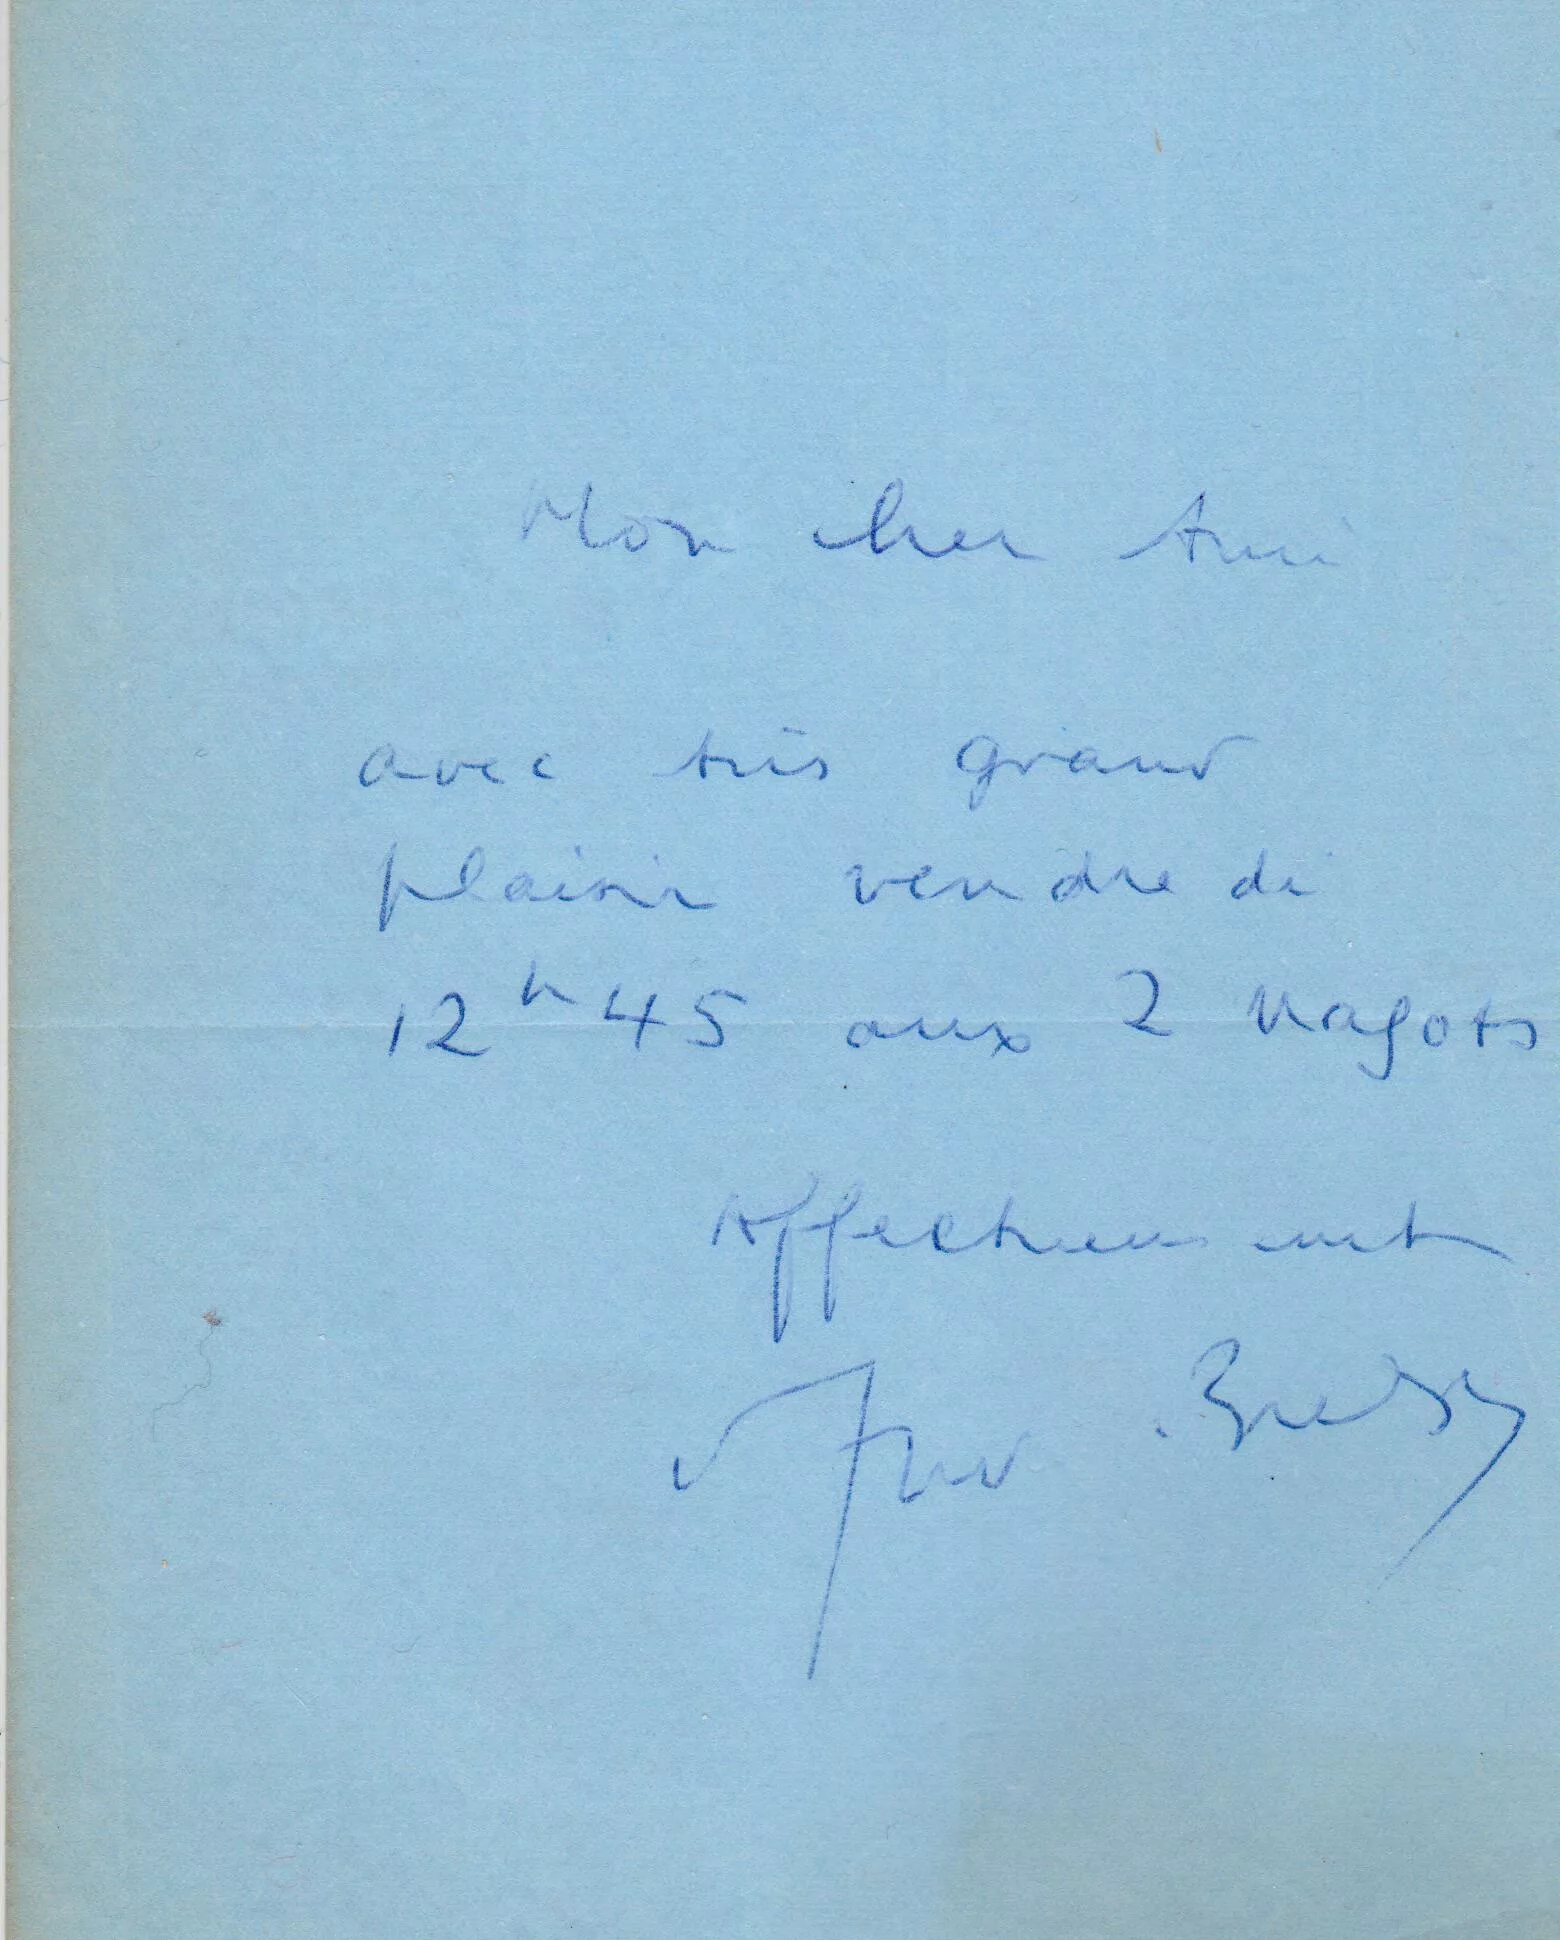 Mon cher Ami
avec très grand
plaisir vendredi
12h45 aux 2 Magots
Affectueusement